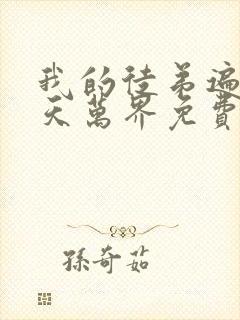 我的徒弟遍
天萬界免費
孫奇茹